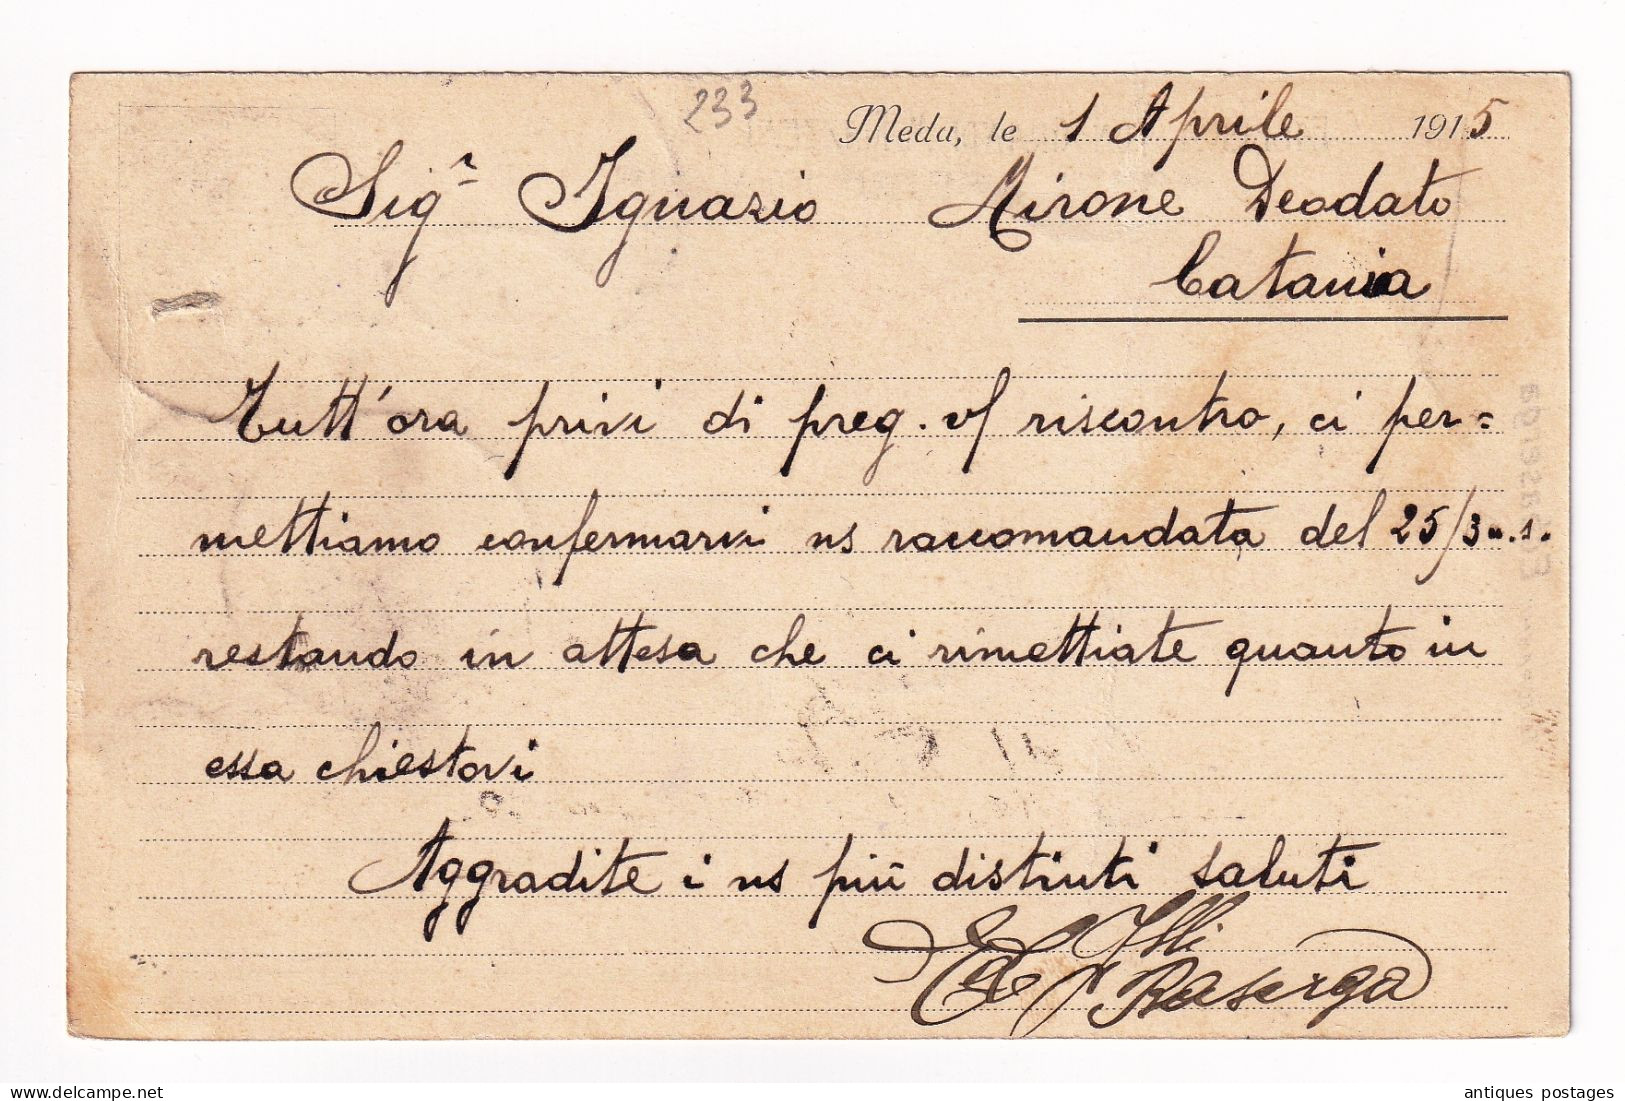 233
Meda, le 1 Aprile 1915
Sigʳ Ignazio Mirone Deodato
Catania
Tutt'ora privi di preg. v/ riscontro, ci per=
mettiamo confermarvi ns raccomandata del 25/3 u.s.
restando in attesa che ci rimettiate quanto in
essa chiestovi
Aggradite i ns più distinti saluti
Flli
Raserga
delcampe.net
antiques postages